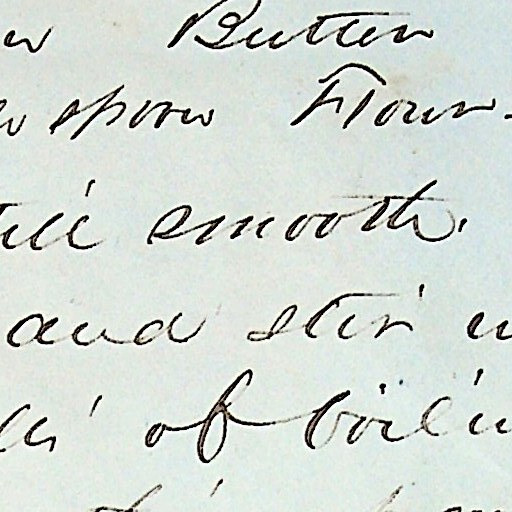 Butter
spoon Flour
till smooth.
and stir
of boilin